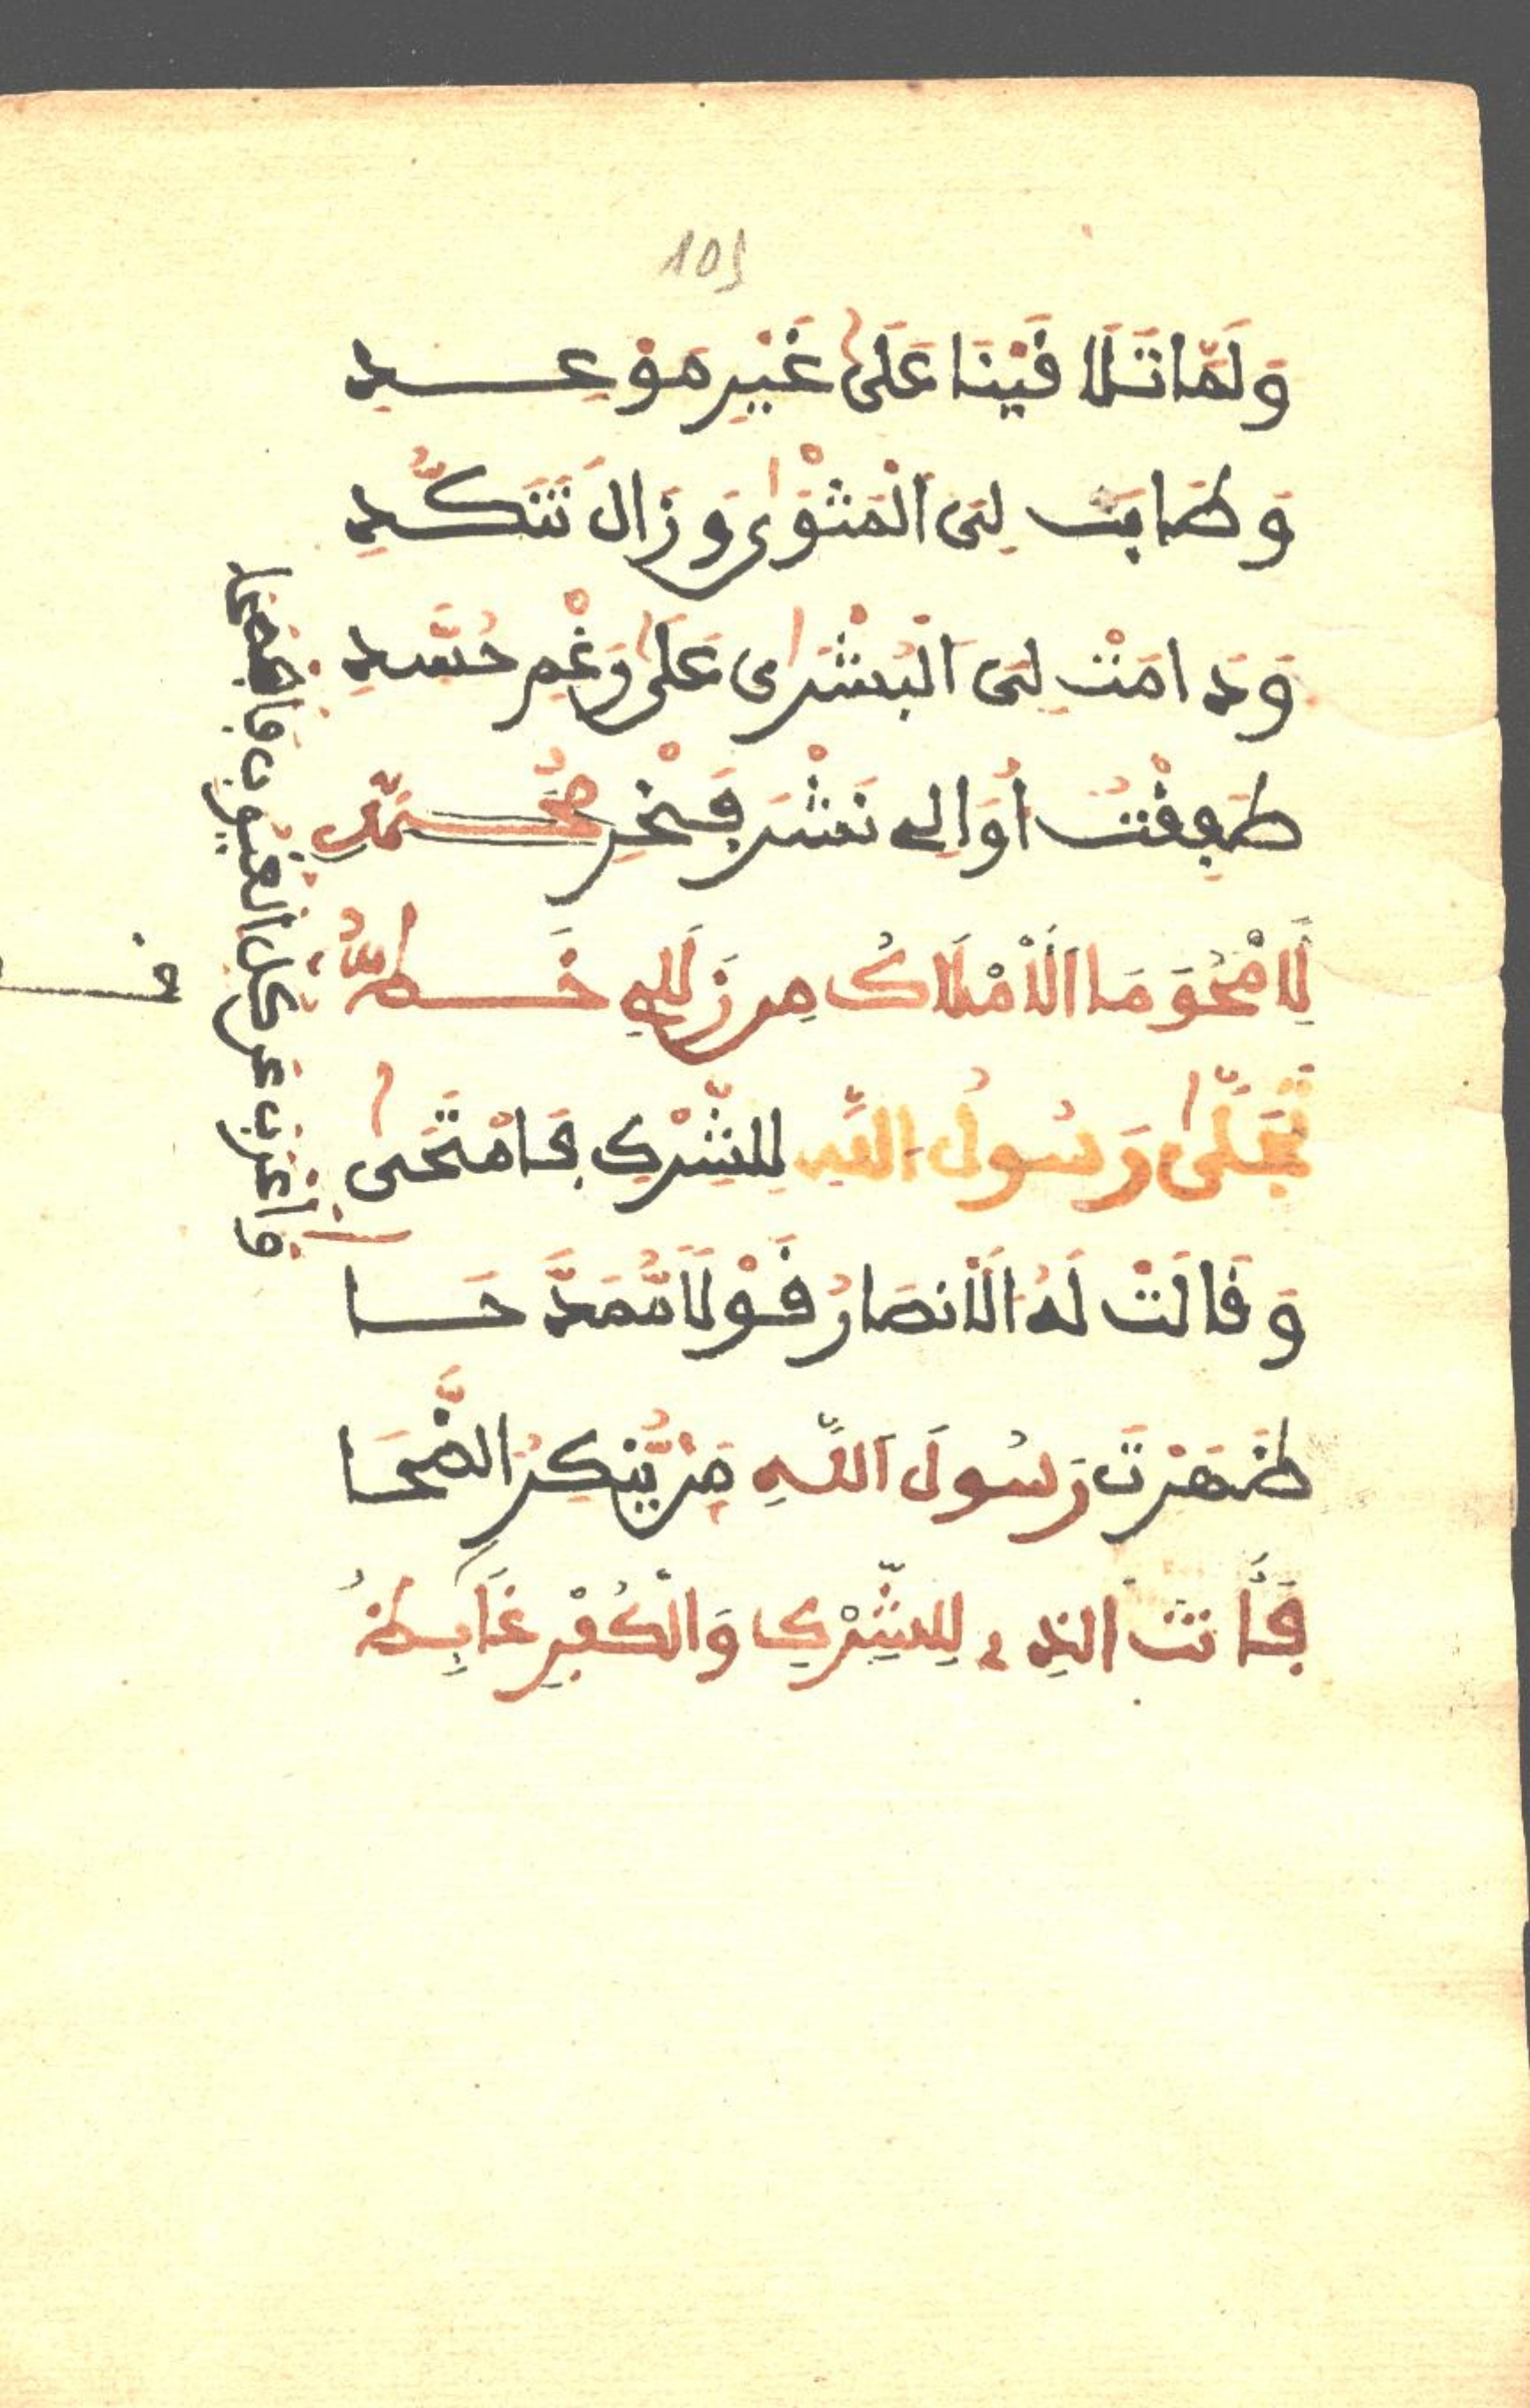 105
وَلَمَّا تَلَاقَيْنَا عَلَىٰ غَيْرِ مَوْعِدِ
وَطَابَتْ لِىَ الْمَثْوٰى وَزَالَ تَنَكُّدِ
وَدَامَتْ لِىَ الْبُشْرٰى عَلَىٰ رَغْمِ حُسَّدِ
طَفِقْتُ أُوَالِے نَشْرَ فَخْرِ مُحَمَّدِ
لِأَمْحُوَ مَا الْأَمْلَاكُ مِن زَلَلِے خَطُّوا
تَجَلَّىٰ رَسُولُ اللَّهِ لِلشِّرْكِ فَامْتَحَىٰ
وَقَالَتْ لَهُ الْأَنصَارُ قَوْلًا مُّمَدَّحَا
ظَهَرْتَ رَسُولَ اللَّهِ مَن يُّنكِرُ الضُّحَا
فَأَنتَ الذِے لِلشِّرْكِ وَالْكُفْرِ غَابِطُ